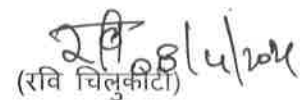 रवि 08/4/2024
(रवि चिलुकीटी)